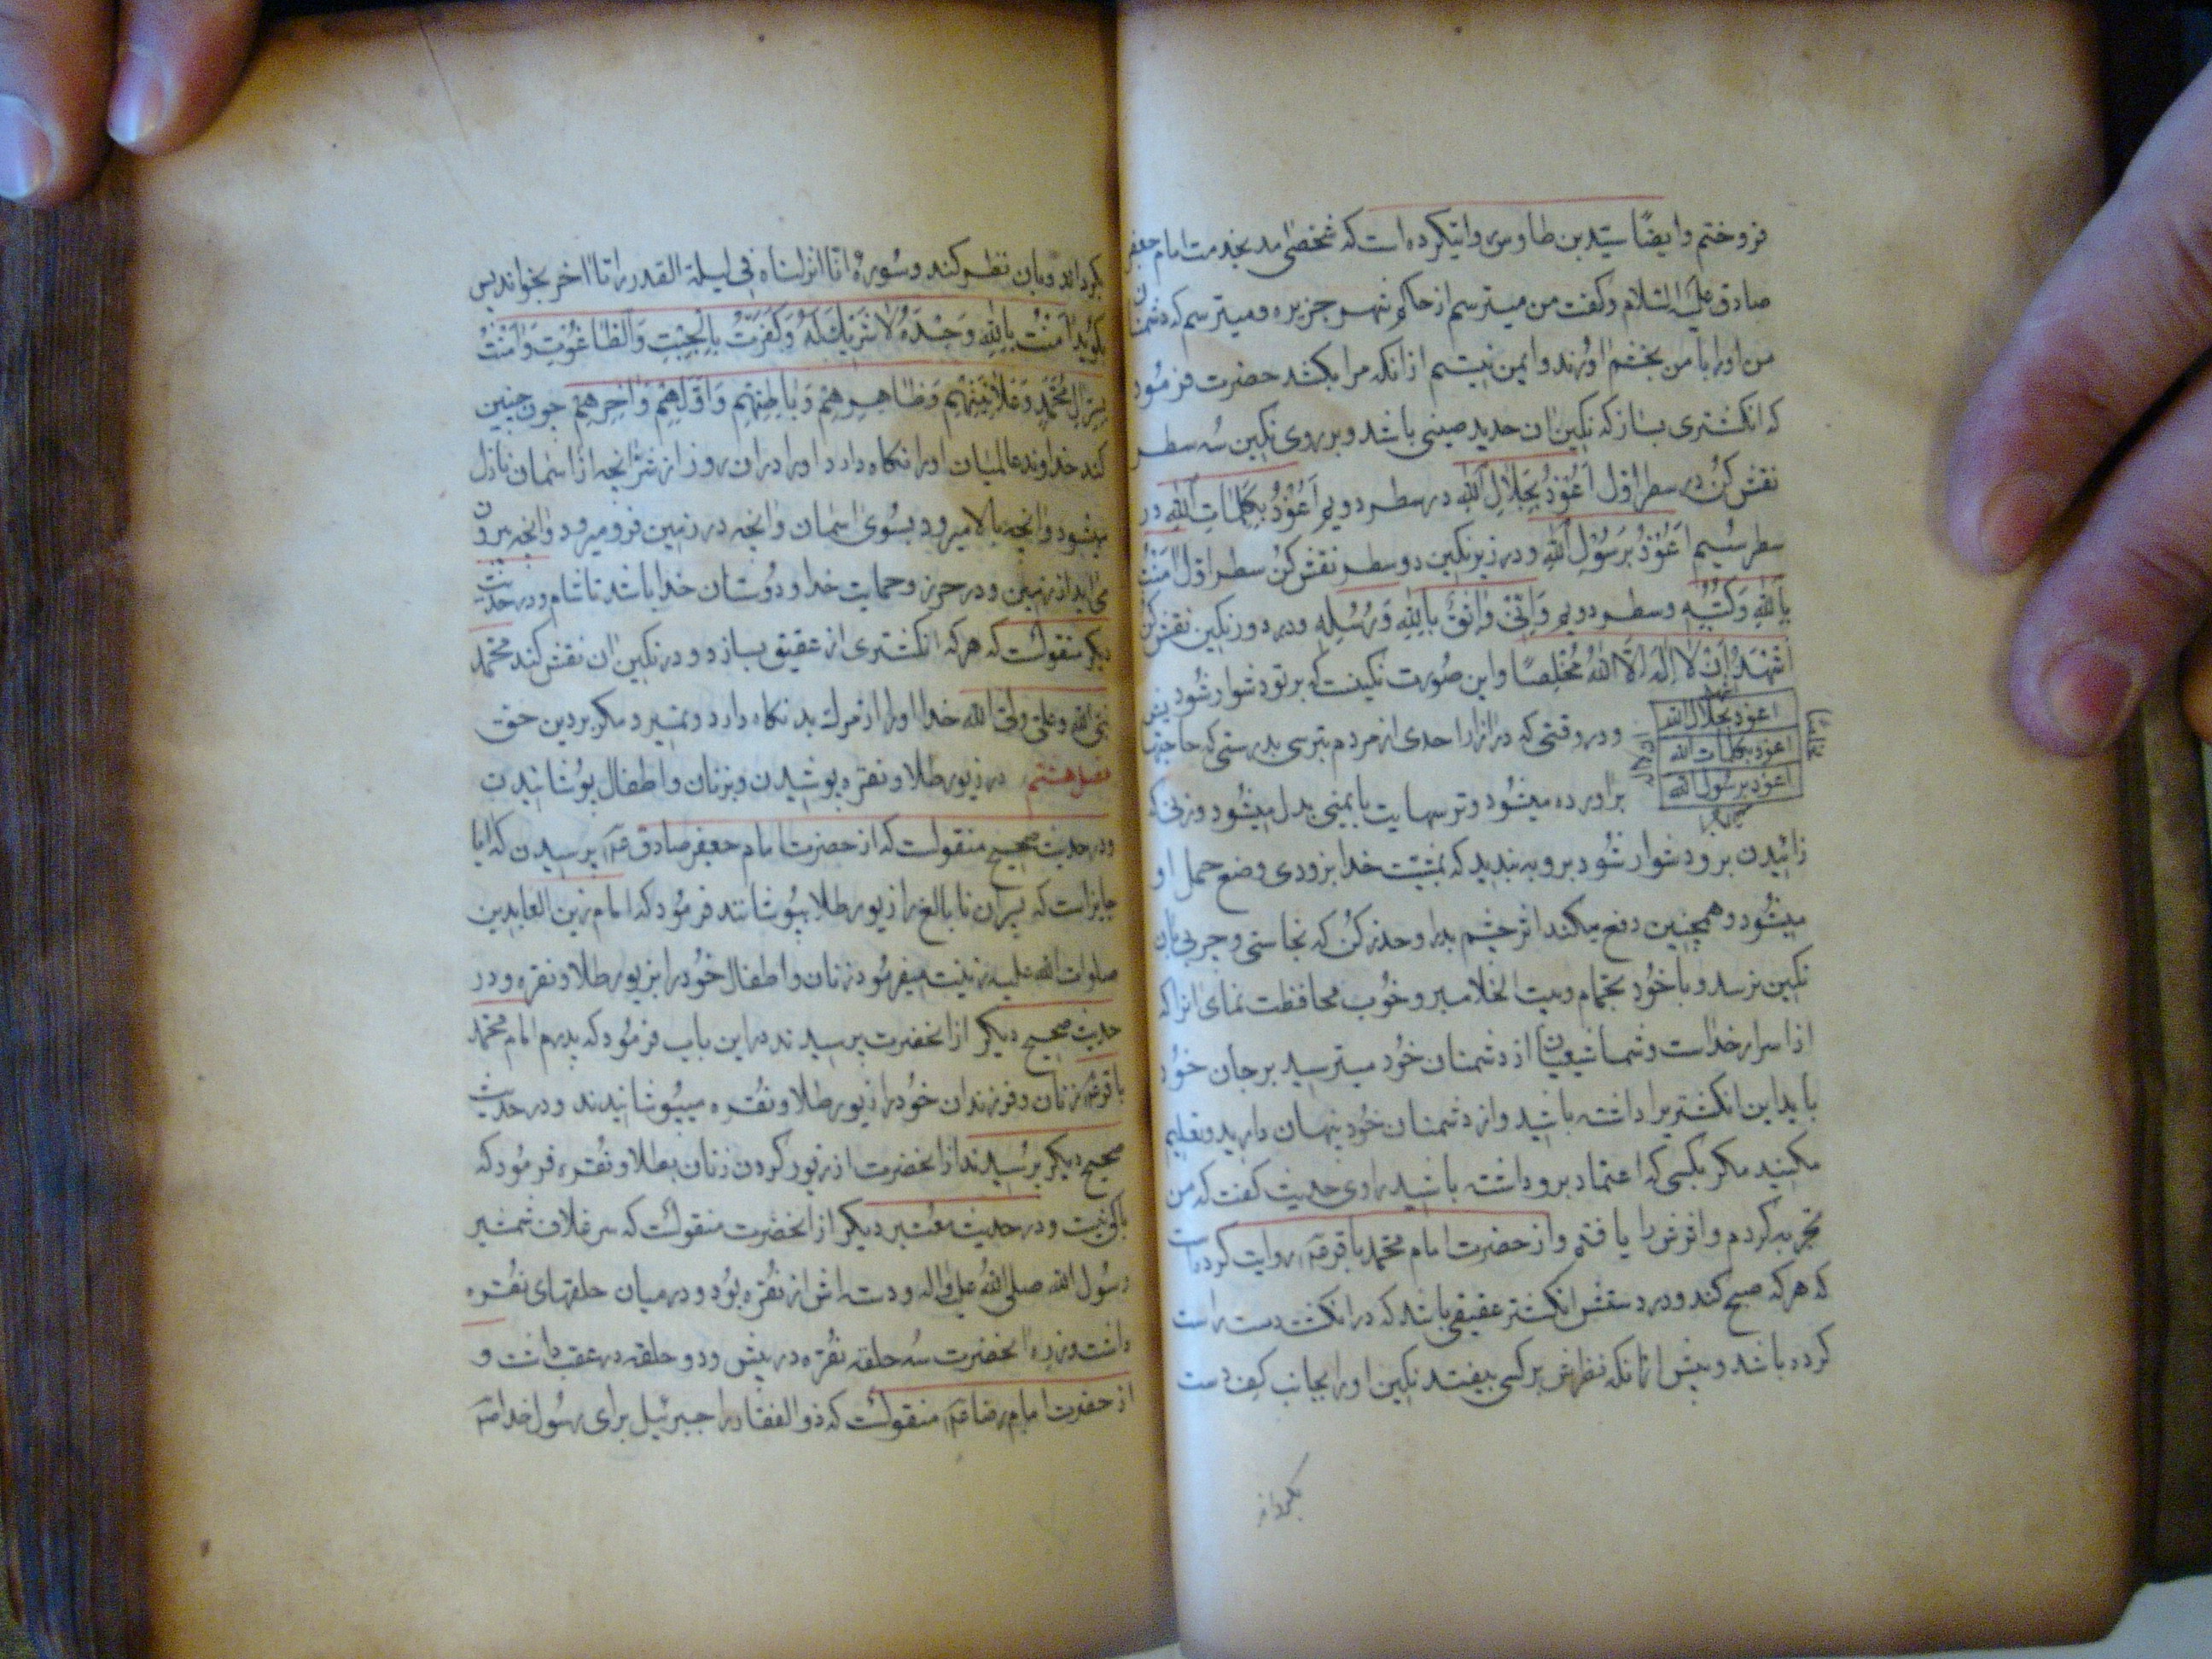 فروختم وایضًا سیّد بن طاوس روایتکرده است که شخصی امد بخدمت امام جعفر
صادق علیه السّلام و گفت من میترسم از حاکم شهر جزیره و میترسم که دشمنان
من او را با من بخشم اورند و ایمن نیستم از انکه مرا بکشد حضرت فرمُود
که انکشتری بساز که نکین ان حدید صینی باشد و بر روی نکین سُه سطر
نقش کُن در سطر اوّل اَعُوْذُ بِجَلَالِ اللّٰهِ در سطر دویم اَعُوْذُ بِکَلِمَاتِ اللّٰهِ در
سطر سُیم اَعُوْذُ بِرَسُوْلِ اللّٰهِ و در زیر نکین دو سطر نقش کُن سطر اوّل اٰمَنْتُ
بِاللّٰهِ وَکُتُبِهٖ و سطر دویم وَاِنّیْ وٰاثِقٌ بِاللّٰهِ وَرُسُلِهِ و در دور نکین نقش کن
اَشْهَدُ اَنْ لٰا اِلٰهَ اِلَّا اللّٰهُ مُخْلِصًا و این صُورت نکینست که بر تو دشوار شُود
اعوذ بجلال الله
اعوذ بکلمات الله
اعوذ برسُول الله
مخلصًا
و در وقتی که در ازار احدی از مردم بترسی بدرستی که حاجتها
براورده میشُود و ترسهایت بایمنی بدل میشُود و زنی که
زائیدن برو دشوار شُود برو به بندید که بمشیّت خدا بزودی وضع حمل او
میشُود و همچنین دفع میکند اثر چشم بد را و حذر کُن که نجاستی و چربی بان
نکین نرسد و با خُود بحمّام و بیت الخلا مبر و خُوب محافظت نمای انرا که
از اسرار خداست و شما شیعیان از دشمنان خُود میترسید بر جان خُود
باید این انکشتر را داشته باشید و از دشمنان خُود پنهان دارید و تعلیم
مکنید مکر بکسی که اعتماد برو داشته باشید راوی حدیث کفت که من
تجربه کردم و اثرش را یافتم و از حضرت امام محمّد باقر عم روایت کرده است
که هر که صبح کند و در دستش انکشتر عقیقی باشد که در انکشت دست راست
کرده باشد و پیش از انکه نظرش بر کسی بیفتد نکین او را بجانب کف دست
بکرداند
بکرداند و بان نظر کند و سُورهٔ انّا انزلناه فی لیلة القدر را تا اخر بخواند پس
بکوید اٰمَنْتُ بِاللّٰهِ وَحْدَهُ لٰا شَرِیْكَ لَهُ وَکَفَرْتُ بِالْجِبْتِ وَالطّٰاغُوْتِ وَاٰمَنْتُ
بِسِرِّ اٰلِ مُحَمَّدٍ وَعَلٰانِیَتِهِمْ وَظٰاهِرِهِمْ وَبٰاطِنِهِمْ وَاَوَّلِهِمْ وَاٰخِرِهِمْ چون چنین
کند خداوند عالمیان او را نکاه دارد او را در ان روز از شرّ انچه از اسمان نازل
میشود و انچه بالا میرود بسُوی اسمان و انچه در زمین فرو میرود و انچه بیرون
می اید از زمین و در حرز و حمایت خدا و دُوستان خدا باشد تا شام و در حدیث
دیکر منقولست که هر که انکشتری از عقیق بسازد و در نکین ان نقش کند محمّد
نبیّ الله و علیّ ولیّ الله خدا او را از مرك بد نکاه دارد و نمیرد مکر بر دین حق
فصل هشتم در زیور طلا و نقره پوشیدن و بزنان و اطفال پوُشانیدن
و در حدیث صحیح منقولست که از حضرت امام جعفر صادق عم پرسیدن که ایا
جایز است که پسران نابالغ را زیور طلا بپوُشانند فرمُود که امام زین العابدین
صلوات الله علیه زینت میفرمُود زنان و اطفال خُود را بزیور طلا و نقره و در
حدیث صحیح دیکر از انحضرت پرسیدند در این باب فرمُود که پدرم امام محمّد
باقر عم زنان و فرزندان خُود را زیور طلا و نقُره میپُوشانیدند و در حدیث
صحیح دیکر پرسیدند از انحضرت از زیور کردن زنان بطلا و نقُره فرمُود که
باکی نیست و در حدیث معُتبر دیکر از انحضرت منقولست که سر غلاف شمشیر
رسُول الله صلی اللهُ علیه واله و دسته اش از نقُره بُود و در میان حلقهای نقُره
داشت و زره انحضرت سُه حلقه نقُره در پیش و دو حلقه در عقب داشت و
از حضرت امام رضا عم منقولست که ذو الفقار را جبرئیل برای رسُول خدا صم